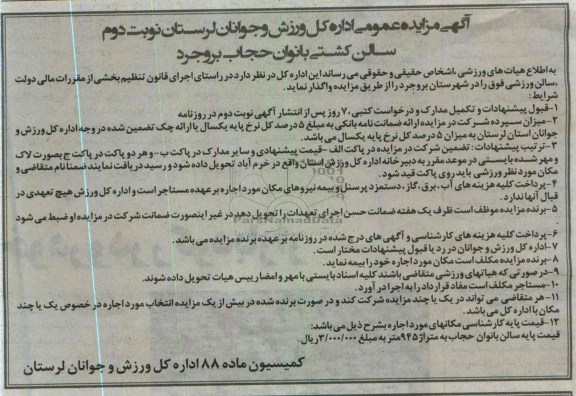 آگهی مزایده عمومی اداره کل ورزش و جوانان لرستان نوبت دوم
سالن کشتی بانوان حجاب بروجرد
به اطلاع هیات های ورزشی، اشخاص حقیقی و حقوقی می رساند این اداره کل در نظر دارد در راستای اجرای قانون تنظیم بخشی از مقررات مالی دولت
،سالن ورزشی فوق را در شهرستان بروجرد را از طریق مزایده واگذار نماید.
شرایط:
۱-قبول پیشنهادات و تکمیل مدارک و درخواست کتبی، ۷ روز پس از انتشار آگهی نوبت دوم در روزنامه
۲-میزان سپرده شرکت در مزایده ارائه ضمانت نامه بانکی به مبلغ ۵ درصد کل نرخ پایه یکسال یا ارائه چک تضمین شده در وجه اداره کل ورزش و
جوانان استان لرستان به میزان ۵ درصد کل نرخ پایه یکسال می باشد.
۳-ترتیب پیشنهادات: تضمین شرکت در مزایده در پاکت الف -قیمت پیشنهادی و سایر مدارک در پاکت ب-و هر دو پاکت در پاکت ج بصورت لاک
و مهر شده بایستی در موعد مقرر به دبیرخانه اداره کل ورزش استان واقع در خرم آباد تحویل داده شود و رسید دریافت نمایند ضمنا نام متقاضی و
مکان مورد نظر ورزشی باید روی پاکت قید شود.
۴-پرداخت کلیه هزینه های آب، برق، گاز، دستمزد پرسنل و بیمه نیروهای مکان مورد اجاره بر عهده مستاجر است و اداره کل ورزش هیچ تعهدی در
قبال آنها ندارد.
۵-برنده مزایده موظف است ظرف یک هفته ضمانت حسن اجرای تعهدات را تحویل دهد در غیر اینصورت ضمانت شرکت در مزایده او ضبط می شود
.
۶-پرداخت کلیه هزینه های کارشناسی و آگهی های درج شده در روزنامه بر عهده برنده مزایده می باشد.
۷-اداره کل ورزش و جوانان در رد یا قبول پیشنهادات مختار است.
۸-برنده مزایده مکلف است مکان مورد اجاره خود را بیمه نماید.
۹-در صورتی که هیاتهای ورزشی متقاضی باشند کلیه اسناد بایستی با مهر و امضار ییس هیات تحویل داده شوند.
۱۰-مستاجر مکلف است مفاد قرارداد را به اجرا در آورد.
۱۱-هر متقاضی می تواند در یک یا چند مزایده شرکت کند و در صورت برنده شده در بیش از یک مزایده انتخاب مورد اجاره در خصوص یک یا چند
مکان با اداره کل می باشد.
۱۲-قیمت پایه کارشناسی مکانهای مورد اجاره بشرح ذیل می باشد:
قیمت پایه سالن بانوان حجاب به متراژ ۹۴۵ متر به مبلغ ۳/۰۰۰/۰۰۰ ریال.
کمیسیون ماده ۸۸ اداره کل ورزش و جوانان لرستان